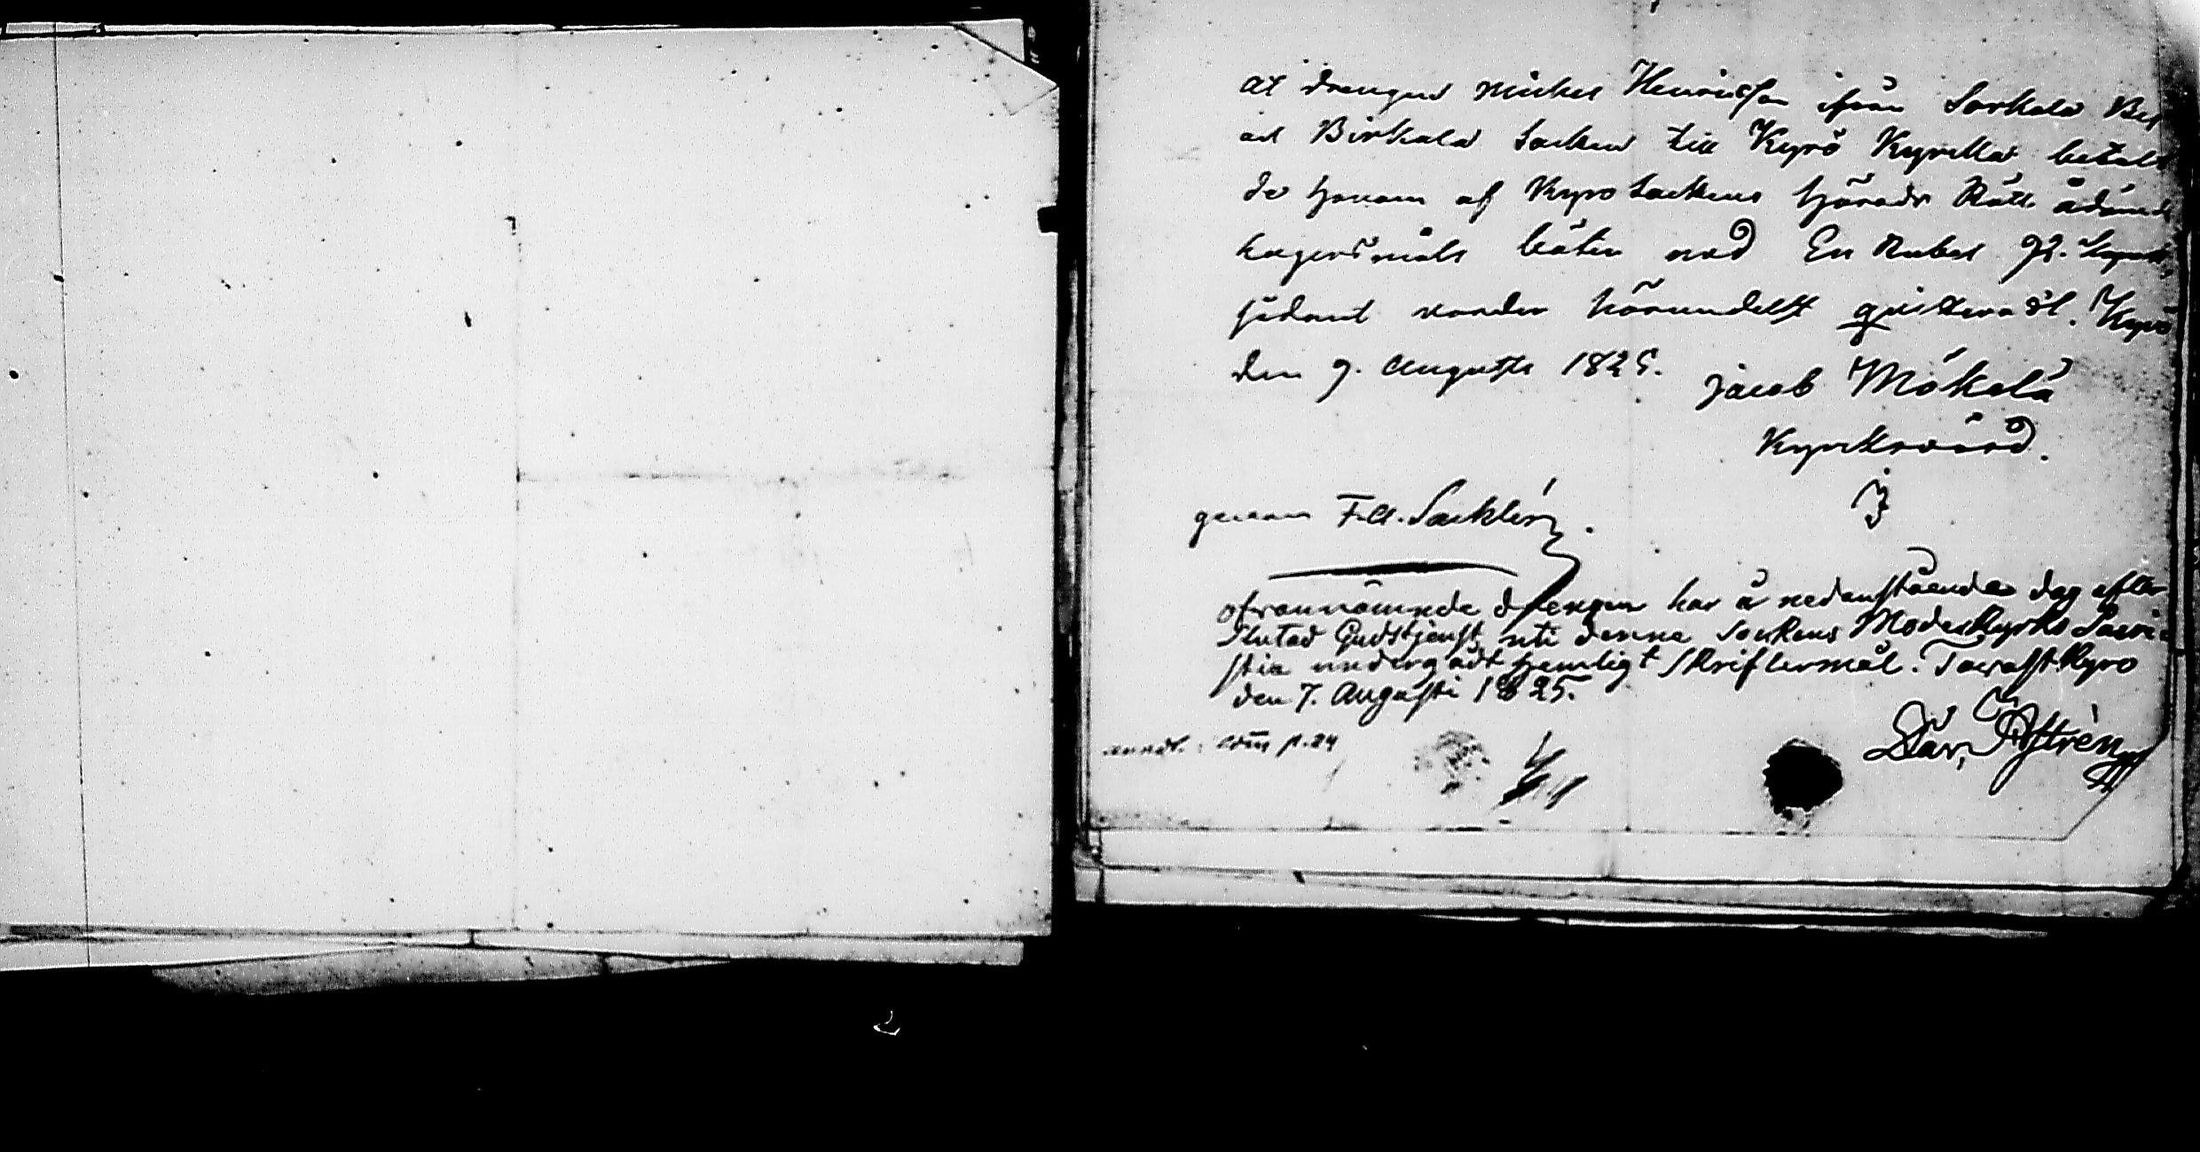 at drengen Michel Henricsson ifrån Sorkala By
ut Birkala Socken till Kyrö Kyrcka betalt
de honom af Kyro Sockens härads Rätt ådömde
lägersmåls böter med En Rubel 92. Kopek
sådant warder härmedelst quitteradt. Kyrö
den 7. Augusti 1825. Jacob Mäkelä
Kyrckvärd.
genom F.A. Sacklén.
ofvannämnde drengen har å nedanstående dag efter
slutad Gudstjenst uti denne Sockens Moderkyrko Sacri-
stia undergådt hemligt skriftermål. Tavastkyro
den 7. Augusti 1825.
Dav. Aström
p. 24